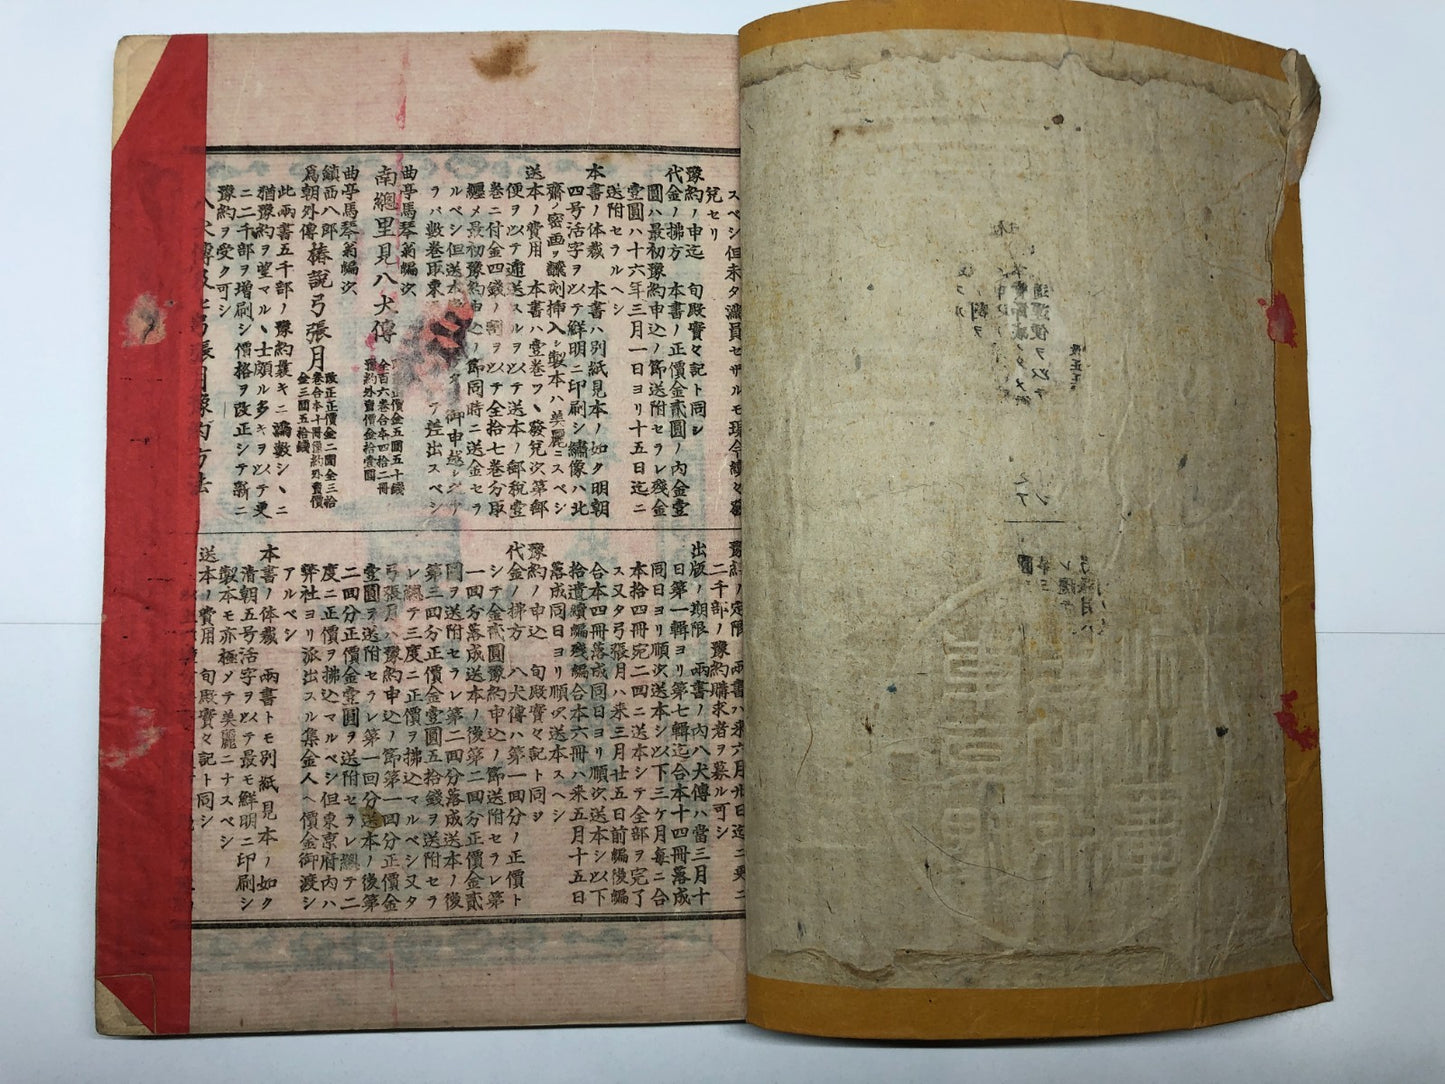 スベシ但未タ滿員セザルモ現今續々發
兌セリ
豫約ノ申込 旬殿實々記ト同シ
代金ノ拂方 本書ノ正價金貳圓ノ內金壹
圓ハ最初豫約申込ノ節送附セラレ殘金
壹圓ハ十六年三月一日ヨリ十五日迄ニ
送附セラルヘシ
本書ノ体裁 本書ハ別紙見本ノ如ク明朝
四号活字ヲ以テ鮮明ニ印刷シ繡像ハ北
齋ノ密画ヲ飜刻挿入シ製本ハ美麗ニスベシ
送本ノ費用 本書ハ壹卷ヲ、發兌次第郵
便ヲ以テ遞送スルヲ以テ送本ノ郵税壹
卷ニ付金四錢ノ割ヲ以テ全拾七卷分取
纒メ最初豫約申込ノ節同時ニ送金セラ
ルベシ但送本
御申越シ
ラバ數卷取束
テ差出スベシ
曲亭馬琴翁編次
南總里見八犬傳
金五圓五十錢
全百六卷合本四拾二冊
豫約外賣價金拾壹圓
曲亭馬琴翁編次
鎮西八郎
爲朝外傳
椿說弓張月
改正正價金二圓
全三拾卷合本十冊豫約外賣價
金三圓五拾錢
此兩書五千部ノ豫約曩キニ滿數シ、ニ
猶豫約ヲ望マル、士頗ル多キヲ以テ更
ニ二千部ヲ増刷シ價格ヲ改正シテ新ニ
豫約ヲ受ク可シ
八犬傳及ヒ弓張月豫約方法
豫約ノ定限 兩書ハ来六月卅日迄ニ更ニ
二千部ノ豫約購求者ヲ募ル可シ
出版ノ期限 兩書ノ內八犬傳ハ當三月十
日第一輯ヨリ第七輯迄合本十四冊落成
同日ヨリ順次送本シ以下三ケ月每ニ合
本拾四冊宛二回ニ送本シテ全部ヲ完了
ス又タ弓張月ハ来三月廿五日前編後編
合本四冊落成同日ヨリ順次送本シ以下
拾遺續編殘編合本六冊ハ来五月十五日
落成同日ヨリ順次送本スヘシ
豫約ノ申込 旬殿實々記ト同シ
代金ノ拂方 八犬傳ハ第一回分ノ正價ト
シテ金貳圓豫約申込ノ節送附セラレ第
一回分落成送本ノ後第二回分正價金貳
圓ヲ送附セラレ第二回分落成送本ノ後
第三回分正價金壹圓五拾錢ヲ送附セラ
レ總テ三度ニ正價ヲ拂込マルベシ又タ
弓張月ハ豫約申込ノ節第一回分正價金
壹圓ヲ送附セラレ第一回分送本ノ後第
二回分正價金壹圓ヲ送附セラレ總テ二
度ニ正價ヲ拂込マルベシ但東京府內ハ
弊社ヨリ派出スル集金人ヘ價金御渡シ
アルベシ
本書ノ体裁 兩書トモ別紙見本ノ如ク
清朝五号活字ヲ以テ最モ鮮明ニ印刷シ
製本モ亦極メテ美麗ニナスベシ
送本ノ費用 旬殿實々記ト同シ